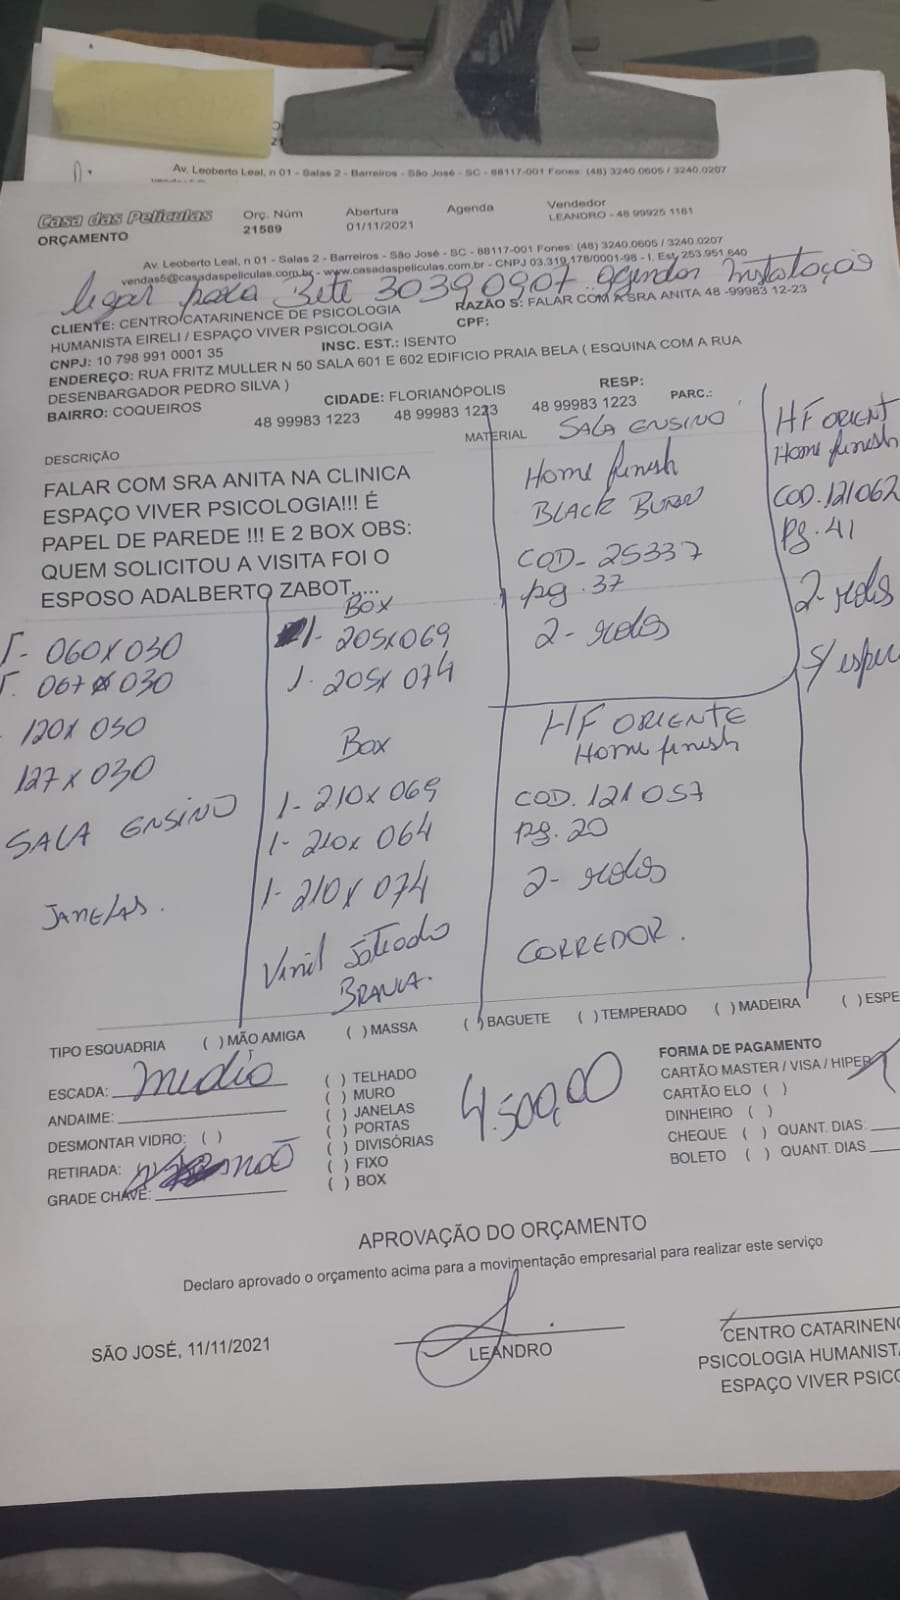 Av. Leoberto Leal, n 01 - Salas 2 - Barreiros - São José - SC - 88117-001 Fones: (48) 3240.0605 / 3240.0207
Casa das Películas
ORÇAMENTO
Orç. Núm
21589
Abertura
01/11/2021
Agenda
Vendedor
LEANDRO - 48 99925 1161
Av. Leoberto Leal, n 01 - Salas 2 - Barreiros - São José - SC - 88117-001 Fones: (48) 3240.0605 / 3240.0207
vendas5@casadaspeliculas.com.br - www.casadaspeliculas.com.br - CNPJ 03.319.178/0001-98 - I. Est. 253.951.640
ligar para Bete 30390907 agendar instalação
CLIENTE: CENTRO CATARINENCE DE PSICOLOGIA
HUMANISTA EIRELI / ESPAÇO VIVER PSICOLOGIA
RAZÃO S: FALAR COM A SRA ANITA 48 -99983 12-23
CNPJ: 10 798 991 0001 35
INSC. EST.: ISENTO
CPF:
ENDEREÇO: RUA FRITZ MULLER N 50 SALA 601 E 602 EDIFICIO PRAIA BELA ( ESQUINA COM A RUA
DESENBARGADOR PEDRO SILVA )
BAIRRO: COQUEIROS
CIDADE: FLORIANÓPOLIS
RESP:
48 99983 1223 48 99983 1223 48 99983 1223
PARC.:
DESCRIÇÃO
MATERIAL
FALAR COM SRA ANITA NA CLINICA
ESPAÇO VIVER PSICOLOGIA!!! É
PAPEL DE PAREDE !!! E 2 BOX OBS:
QUEM SOLICITOU A VISITA FOI O
ESPOSO ADALBERTO ZABOT.....
1- 060x030
1- 067x030
120x030
127x030
SALA ENSINO
JANELAS.
Box
1- 205x069
1- 205x074
Box
1- 210x069
1- 210x064
1- 210x074
Vinil Jateado
BRANCA.
SALA ENSINO
Home finish
BLACK
COD- 25337
pg. 37
2- rolos
HF ORIENTE
Home finish
COD. 121057
pg. 20
2- rolos
CORREDOR.
HF ORIENT
Home finish
COD. 121062
pg. 41
2- rolos
S/ espe
TIPO ESQUADRIA ( ) MÃO AMIGA ( ) MASSA ( ) BAGUETE ( ) TEMPERADO ( ) MADEIRA ( ) ESPE
ESCADA: medio
ANDAIME:
DESMONTAR VIDRO: ( )
RETIRADA: não
GRADE CHAVE:
( ) TELHADO
( ) MURO
( ) JANELAS
( ) PORTAS
( ) DIVISÓRIAS
( ) FIXO
( ) BOX
4.500,00
FORMA DE PAGAMENTO
CARTÃO MASTER / VISA / HIPER
CARTÃO ELO ( )
DINHEIRO ( )
CHEQUE ( ) QUANT. DIAS.
BOLETO ( ) QUANT. DIAS
APROVAÇÃO DO ORÇAMENTO
Declaro aprovado o orçamento acima para a movimentação empresarial para realizar este serviço
SÃO JOSÉ, 11/11/2021
LEANDRO
CENTRO CATARINENC
PSICOLOGIA HUMANIST
ESPAÇO VIVER PSICO